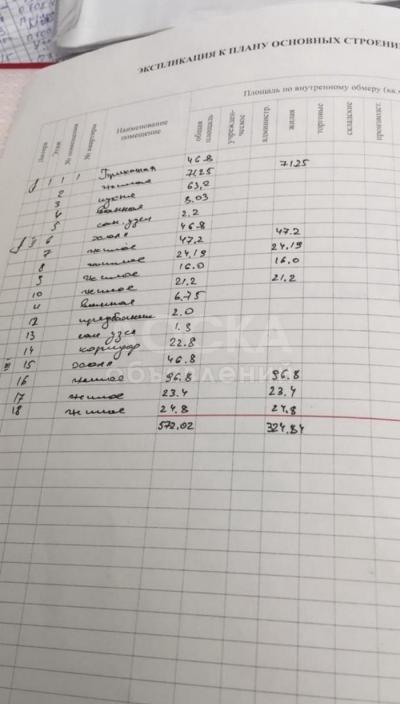 ЭКСПЛИКАЦИЯ К ПЛАНУ ОСНОВНЫХ СТРОЕНИ
Площадь по внутреннему обмеру (кв
Литера
Этаж
№ помещения
№ квартиры
Наименование помещение
общая площадь
учрежден-ческое
администр.
жилая
торговые
складские
производст.
1 1 1 Прихожая 46.8
2 жилое 71.25 71.25
3 кухня 63,2
4 ванная 8.03
5 сан. узел 2.2
6 холл 46.8
7 жилое 47.2 47.2
8 жилое 24.19 24.19
9 жилое 16.0 16.0
10 жилое 21.2 21.2
11 ванная 6.75
12 предбанник 2.0
13 сан. узел 1.3
14 коридор 22.8
III 15 холл 46.8
16 жилое 96.8 96.8
17 жилое 23.4 23.4
18 жилое 24.8 24.8
572.02 324.84
ДОСКА
объявлений